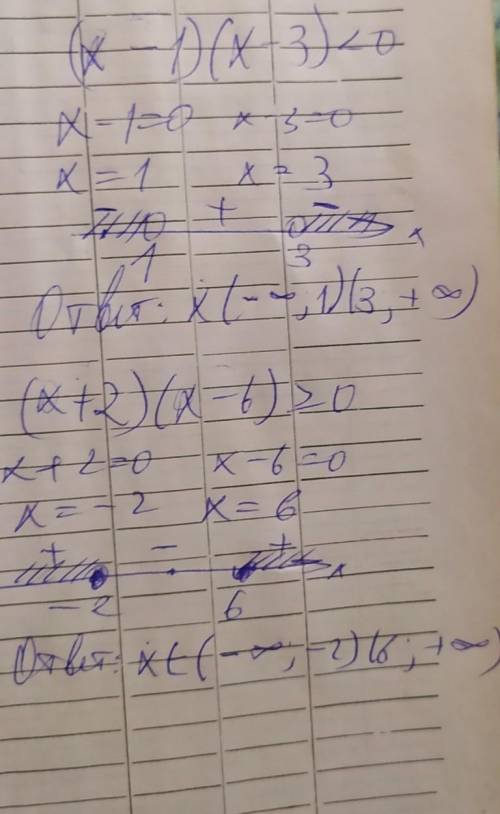 (x - 1)(x - 3) < 0
x - 1 = 0 x - 3 = 0
x = 1 x = 3
- + -
1 3 x
Ответ: x (-∞, 1)(3, +∞)
(x + 2)(x - 6) ≥ 0
x + 2 = 0 x - 6 = 0
x = -2 x = 6
+ - +
-2 6 x
Ответ: x ∈ (-∞; -2)(6; +∞)